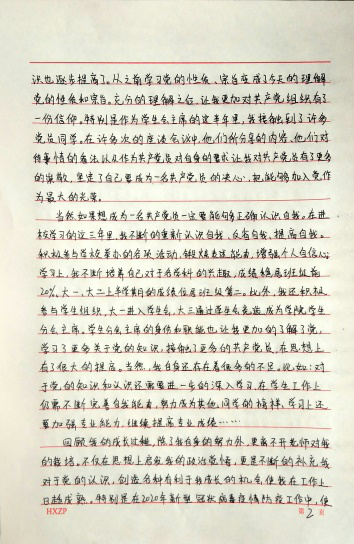 识也逐步提高了。从之前学习党的性质、宗旨变成了今天的理解
党的性质和宗旨。充分的理解之后,让我更加对共产党组织有了
一份信仰。特别是作为学生会主席的这半年里,我接触到了许多
党员同学。在许多次的座谈会议中,他们所分享的内容、他们对
待事情的看法以及作为共产党员对自身的要求让我对共产党员有了更多
的崇敬,坚定了自己要成为一名共产党员的决心,把能够加入党作
为最大的光荣。
当然如果想成为一名共产党员一定要能够正确认识自我。在进
校学习的这三年里,我不断的重新认识自我、反省自我、提高自我。
积极参与学校举办的各项活动,锻炼表达能力,增强个人自信心
学习上,我不断培养自己对于各学科的兴趣,成绩稳居班级前
20%,大一、大二上半学期的成绩位居班级第二。此外,我还积极
参与学生组织,大一进入学生会,大三通过学生会竞选成为学院学生
分会主席,学生分会主席的身份和职能也让我更加的了解了党,
学习了更多关于党的知识,接触了更多的共产党员,在思想上
有了很大的提高。当然,我自身还存在着很多的不足。比如:对
于党的知识和认识还需要进一步的深入学习,在学生工作上
仍需不断完善自我能力,努力成为其他同学的榜样,学习上还
要加强专业能力,继续提高专业成绩……
回顾我的成长过程,除了我自身的努力外,更离不开老师对我
的栽培。不仅在思想上启发我的政治觉悟,更是不断的补充我
对于党的认识,创造各种有利于我成长的机会,使我在工作上
日趋成熟。特别是在2020年新型冠状病毒疫情防疫工作中,使
HXZP
第2页